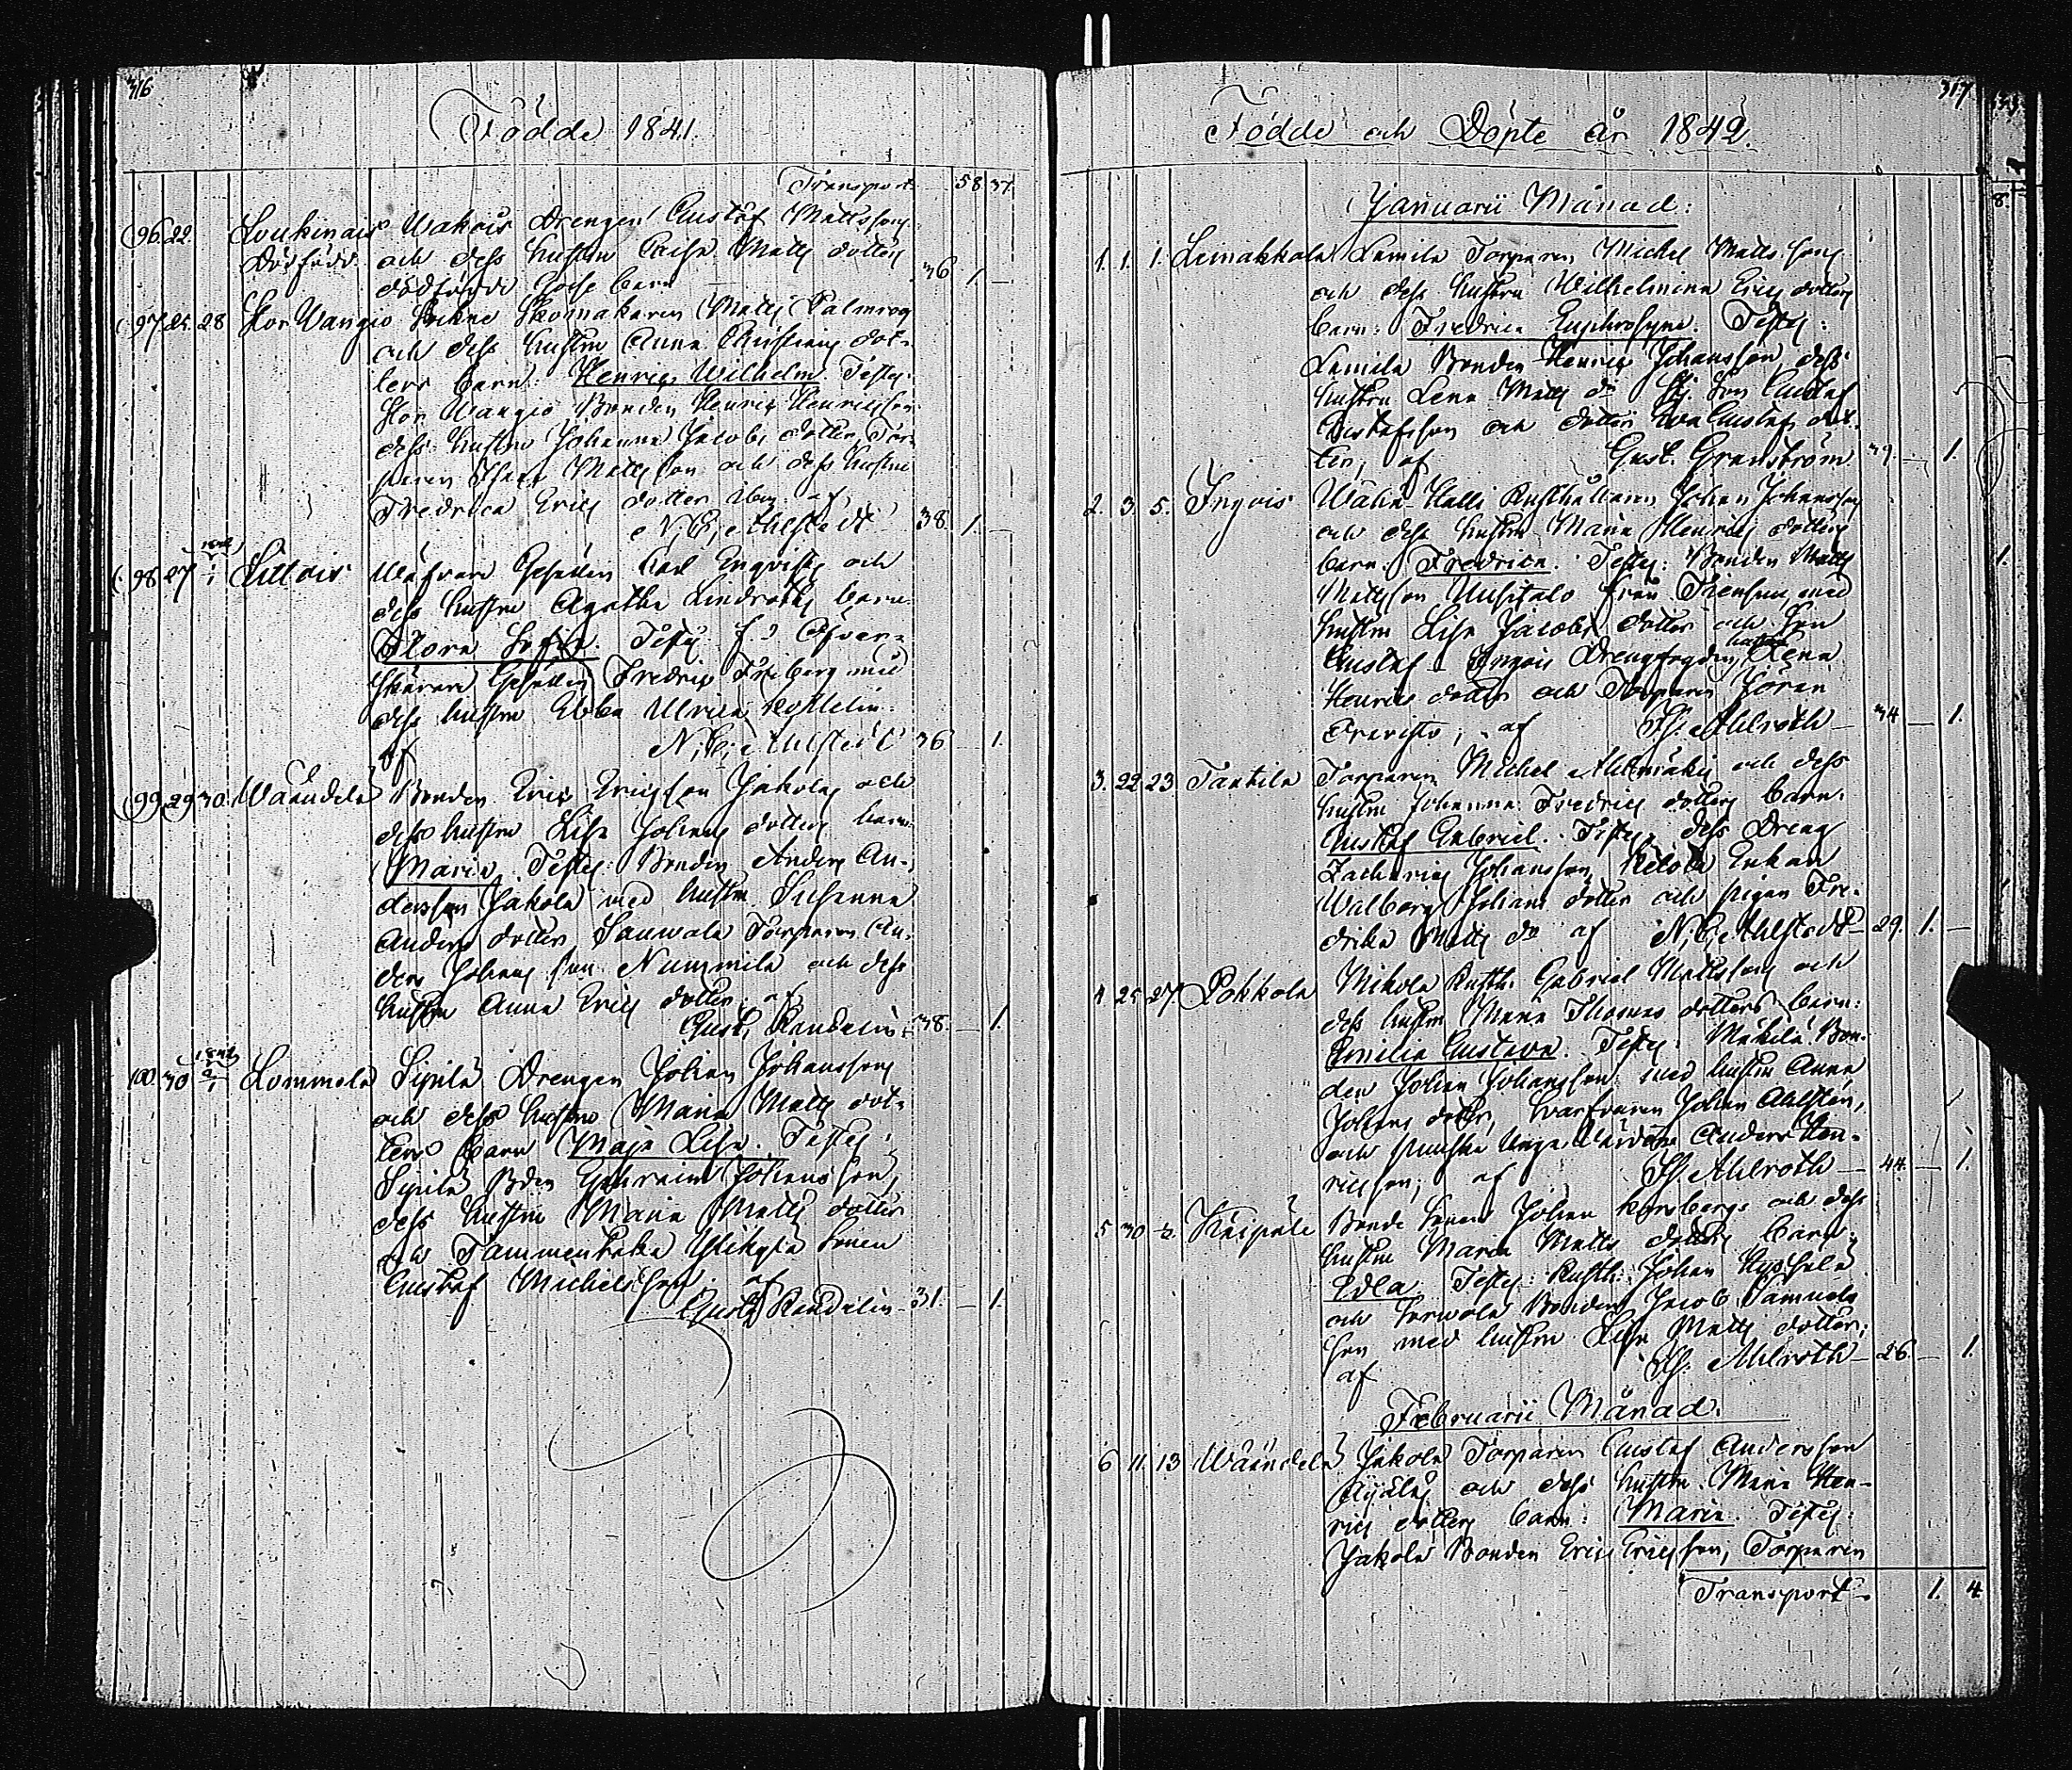 316
Födde 1841.
Transport 58 37.
96. 22. Loukinais Wakois Drengen Gustaf Mattssons
Dödfödd. och dess hustru Caisa Matts dotters
dödfödde Gosse barn 36 1. —
97. 25. 28 Stor Wangio Skomakaren Matts Palmroos
och dess hustru Anna Christians dot-
ters barn: Henric Wilhelm. Testes:
Stor Wangio Bonden Henric Henricsson
dess hustru Johanna Jacobs dotter, Tor-
paren Matts son och dess hustru
Fredrica Erics dotter af
N. E. Ahlstedt 38. 1. —
98. 27 1842 1/1 Lillois Wäfvare Gesällen Carl Enqvists och
dess hustru Agatha Lindroths barn
Flora Sofia. Testes: f. d. Öfver-
skärare Gesällen Fredric Friberg med
dess hustru Ebba Ulrica
af N. E. Ahlstedt 36 — 1.
99. 29. 30. Wäändelä Bonden Eric Ericsson Jakolas och
dess hustru Lisa Johans dotters barn
Maria. Testes: Bonden Anders An-
dersson Jakola med hustru Susanna
Anders dotter, Sauwala Torparen An-
ders Johans son Nummila och dess
hustru Anna Erics dotter; af
Gust. Randelin 38. — 1.
100. 30 1842 2/1 Lommola Sipilä Drengen Johan Johanssons
och dess hustru Maria Matts dot-
ters barn Maja Lisa. Testes:
Sipilä Bden Ephraim Johansson,
dess hustru Maria Matts dotter
och Tammentaka sonen
Gustaf Michelsson. af
Gust. Randelin 31. — 1.
317
Födde och Döpte år 1842.
Januarii Månad:
1. 1. 1. Leinakkala Lamila Torparen Michel Mattssons
och dess hustru Wilhelmina Erics dotters
barn: Fredrica Euphrosyne. Testes:
Lamila Bonden Henric Johansson, dess
hustru Lena Matts dr Gustaf
Gustafsson och dotter Eva Gustafs dot-
ter; af Gust. Granström 39. — 1.
2. 3. 5. Ingois Wähä-Talli Rusthållaren Johan Johanssons
och dess hustru Maria Henrics dotters
barn. Fredrica. Testes: Bonden Matts
Mattsson Uusitalo från med
hustru Lisa Jacobs dotter och Son
Gustaf Ingois Drengfogdens hustru Lena
Henrics dotter och Torparen Jöran
; af Ahlroth — 34 — 1.
3. 22 23 Tantila Torparen Michel Alhmäkis och dess
hustru Johanna Fredrics dotters barn.
Gustaf Gabriel. Testes: dess Dreng
Zacharias Johansson, Enkan
Walborg Johans dotter och pigan Fre-
drika Matts dr af N. E. Ahlstedt 29. 1. —
4 25 27 Pokkola Mikola Rusth. Gabriel Mattssons och
dess hustru Maria Thomas dotters barn:
Emilia Gustava. Testes: Mäkilä Bon-
den Johan Johansson med hustru Anna
Johans dotter, Johan Ahlstén,
och Anders Hen-
ricsson; af Ahlroth — 44. — 1.
5 30 Käipälä Bonde sonen Johan Kornbergs och dess
hustru Maria Matts dotters barn:
Edla. Testes: Rusth. Johan
och Bonden Jacob Samuels
son med hustru Lisa Matts dotter;
af Ahlroth — 26. — 1.
Februarii Månad.
6 11. 13 Wäändelä Jakola Torparen Gustaf Andersson
och dess hustru Maria Hen-
rics dotters barn: Maria. Testes:
Jakola Bonden Eric Ericsson, Torparen
Transport — 1. 4